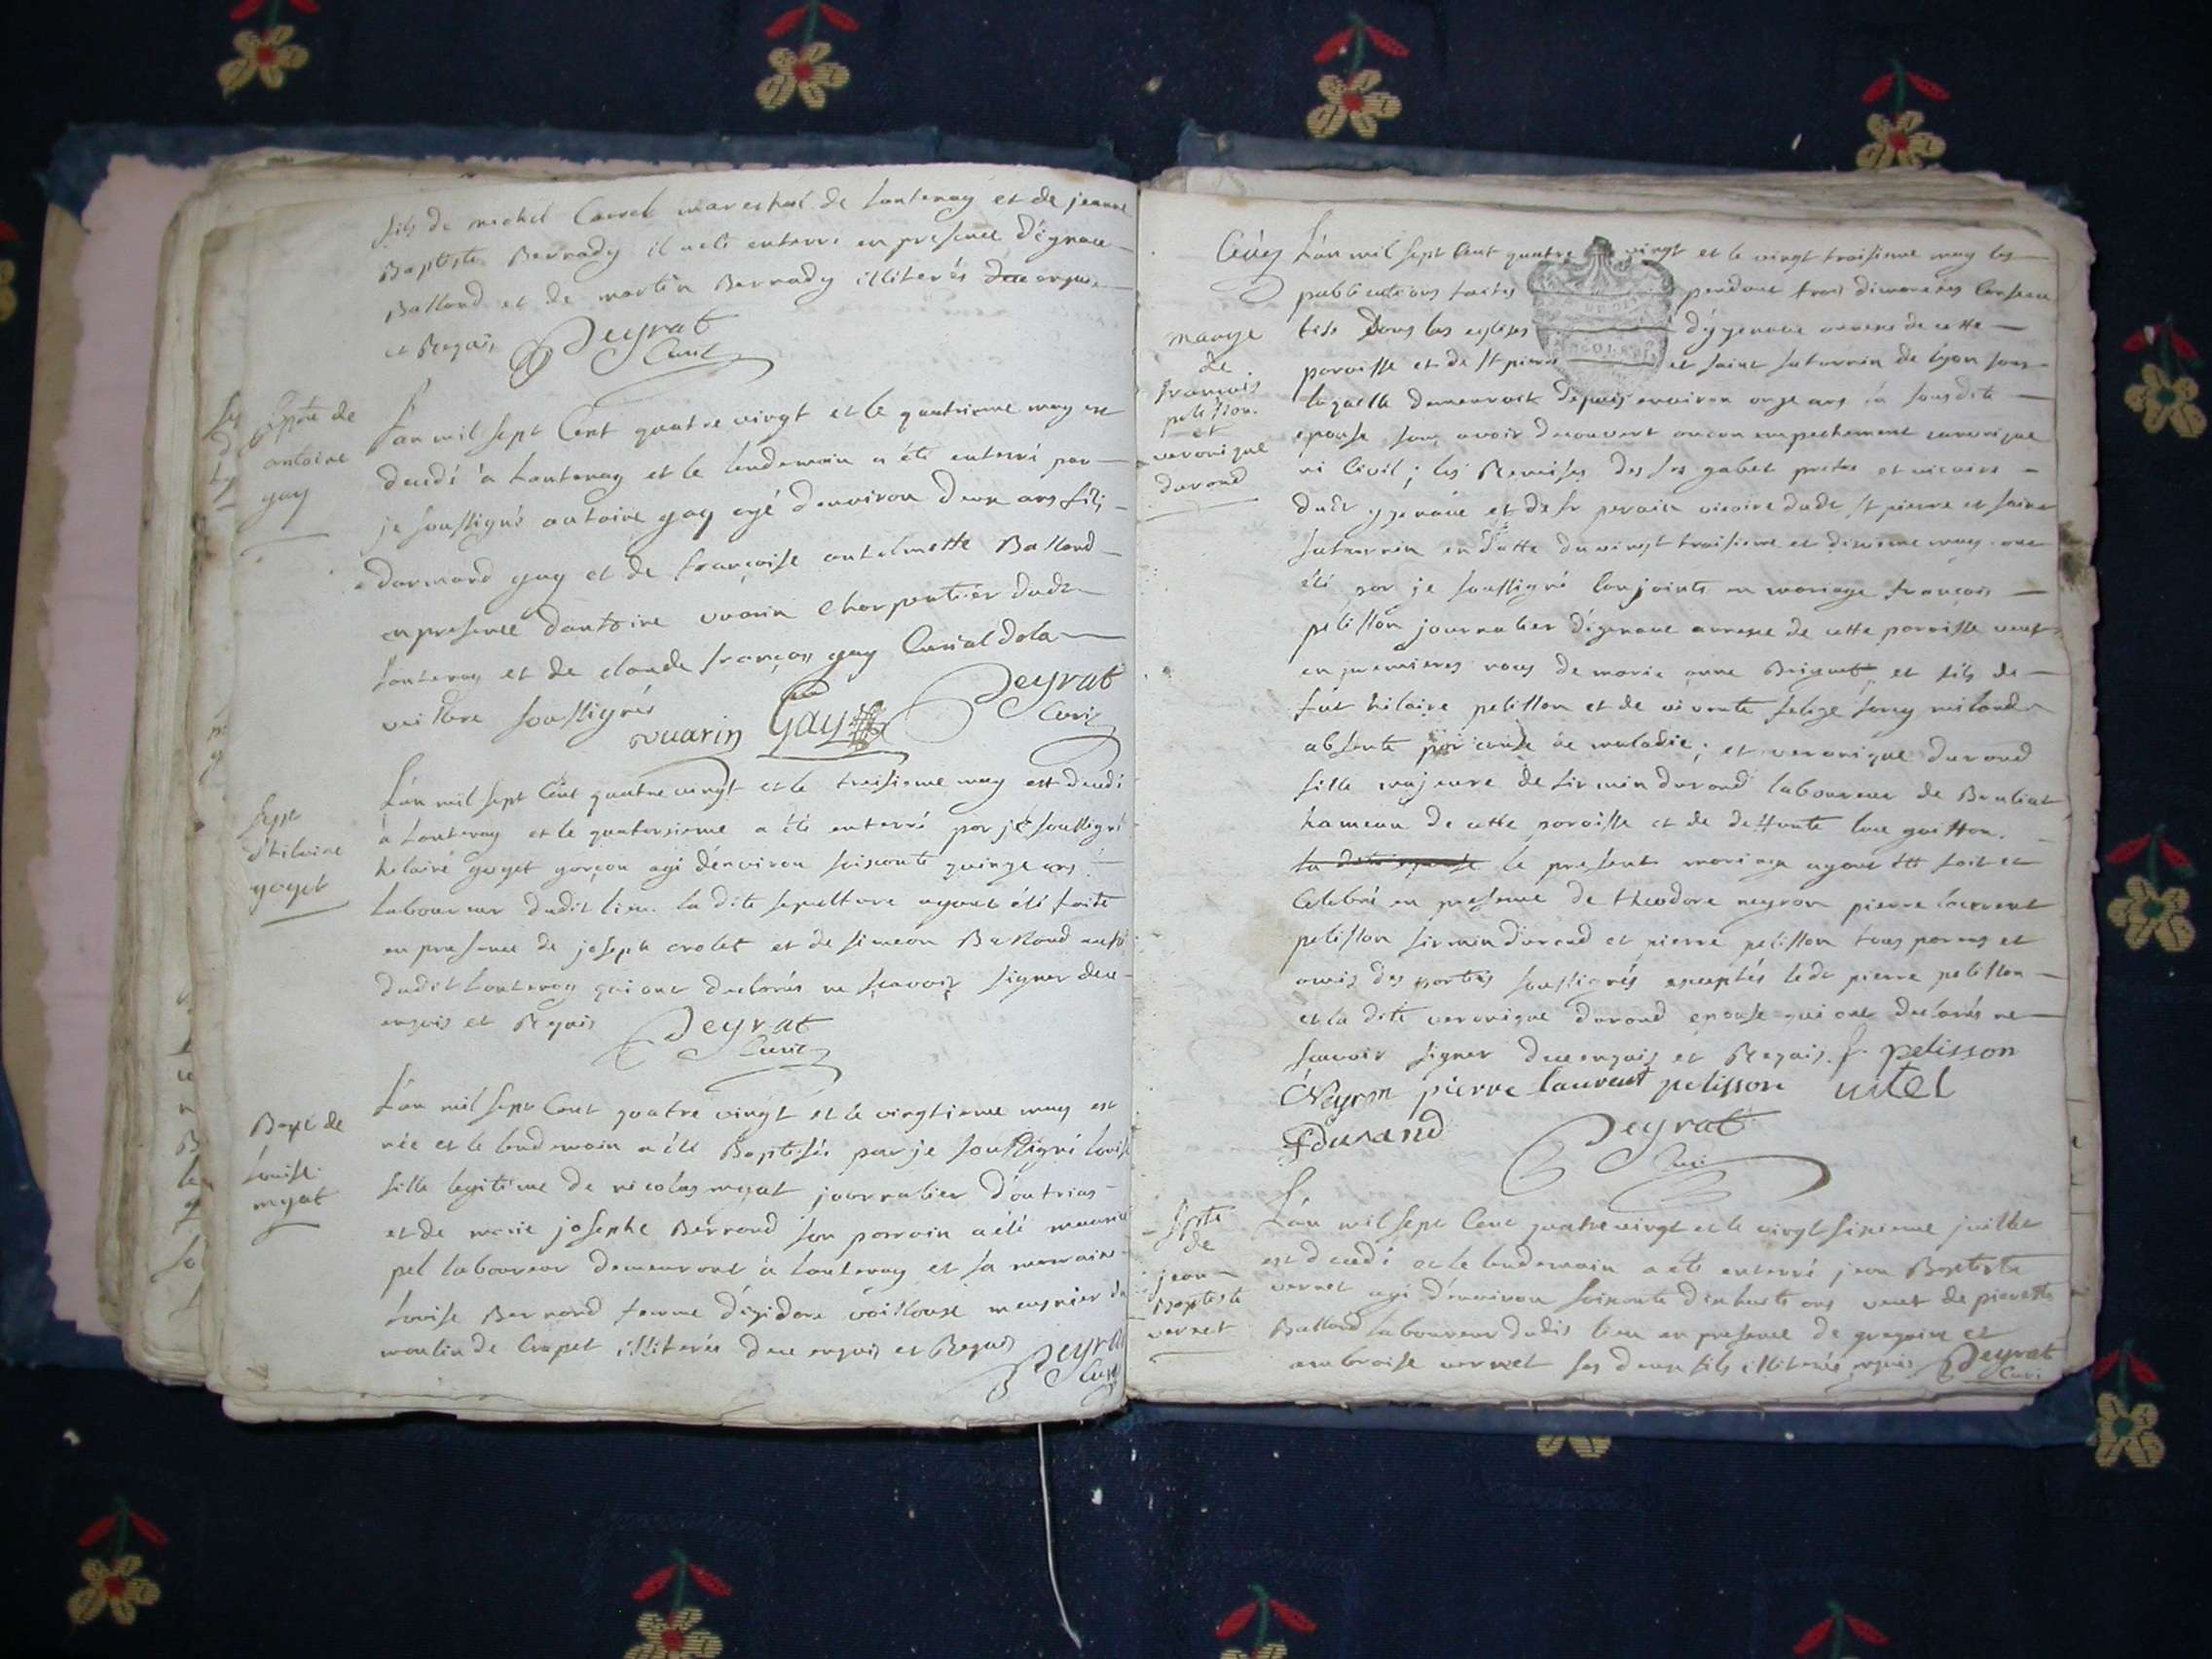 fils de michel Carrel mareschal de lantenay et de jeanne
Baptiste Bernady il a eté enterré en presence d'ignace
Balland et de martin Bernady illiterés enquis
et Requis Peyrat
Curé
Spre de
antoine
gay
L'an mil sept Cent quatre vingt et le quatrieme may est
decedé à Lantenay et le lendemain a été enterré par
je soussigné antoine gay agé d'environ deux ans fils
d'armand gay et de françoise antelmette Balland
en presence d'antoine vuarin charpentier dudt
Lantenay et de claude françois gay
soussignés
vuarin Gay Peyrat
Curé
Sepr
d'hilaire
goyet
L'an mil sept Cent quatre vingt et le treisieme may est decedé
à Lantenay et le quatorsieme a été enterré par je soussigné
hilaire goyet garçon agé d'environ soixante quinze ans
laboureur dudit lieu. la dite sepulture ayant été faite
en presence de joseph crolet et de simeon Balland aussi
dudit Lantenay qui ont declarés ne sçavoir signer deue
enquis et Requis Peyrat
Curé
Bapt de
Louise
myat
L'an mil sept Cent quatre vingt et le vingtieme may est
née et le lendemain a été Baptisée par je soussigné Louise
fille legitime de nicolas myat journalier d'outrias
et de marie josephe Bernard son parrain a été maurice
pel laboureur demeurant à Lantenay et sa marraine
Louise Bernard femme d'isidore meusnier du
moulin de Crapet illiterés deue enquis et Requis Peyrat
Curé
L'an mil sept Cent quatre vingt et le vingt troisieme may les
publications faites pendant trois dimanches Consecu
tifs dans les eglises d'ygenave annexe de cette
paroisse et de St pierre et saint saturnin de lyon sous
laquelle demeuroit depuis environ onze ans la susdite
epouse sans avoir decouvert aucun empechement canonique
ni Civil; les Remises des srs gabet pretre et vicaire
dudt ygenave et de sr vicaire dudt St pierre et saint
saturnin en datte du vingt troisieme et dixieme may ont
été par je soussigné Conjoints en mariage françois
pelisson journalier d'igenave annexe de cette paroisse veuf
en premieres noces de marie anne et fils de
fut hilaire pelisson et de vivante
absente par cause de maladie; et veronique durand
fille majeure de firmin durand laboureur de
hameau de cette paroisse et de deffunte guitton.
le present mariage ayant été fait et
Celebré en presence de theodore neyron pierre laurent
pelisson firmin durand et pierre pelisson tous parens et
amis des parties soussignés exceptés ledt pierre pelisson
et la dite veronique durand epouse qui ont declarés ne
scavoir signer deue enquis et Requis. f. pelisson
Neyron pierre laurent pelisson uitel
f durand Peyrat
Curé
mariage
de
françois
pelisson
et
veronique
durand
Spte
de
jean
Baptiste
vernet
L'an mil sept Cent quatre vingt et le vingt sixieme juillet
est decedé et le lendemain a été enterré jean Baptiste
vernet agé d'environ soixante dix huit ans veuf de pierrette
Balland laboureur dudit lieu en presence de gregoire et
ambroise vernet ses deux fils illiterés enquis Peyrat
Curé